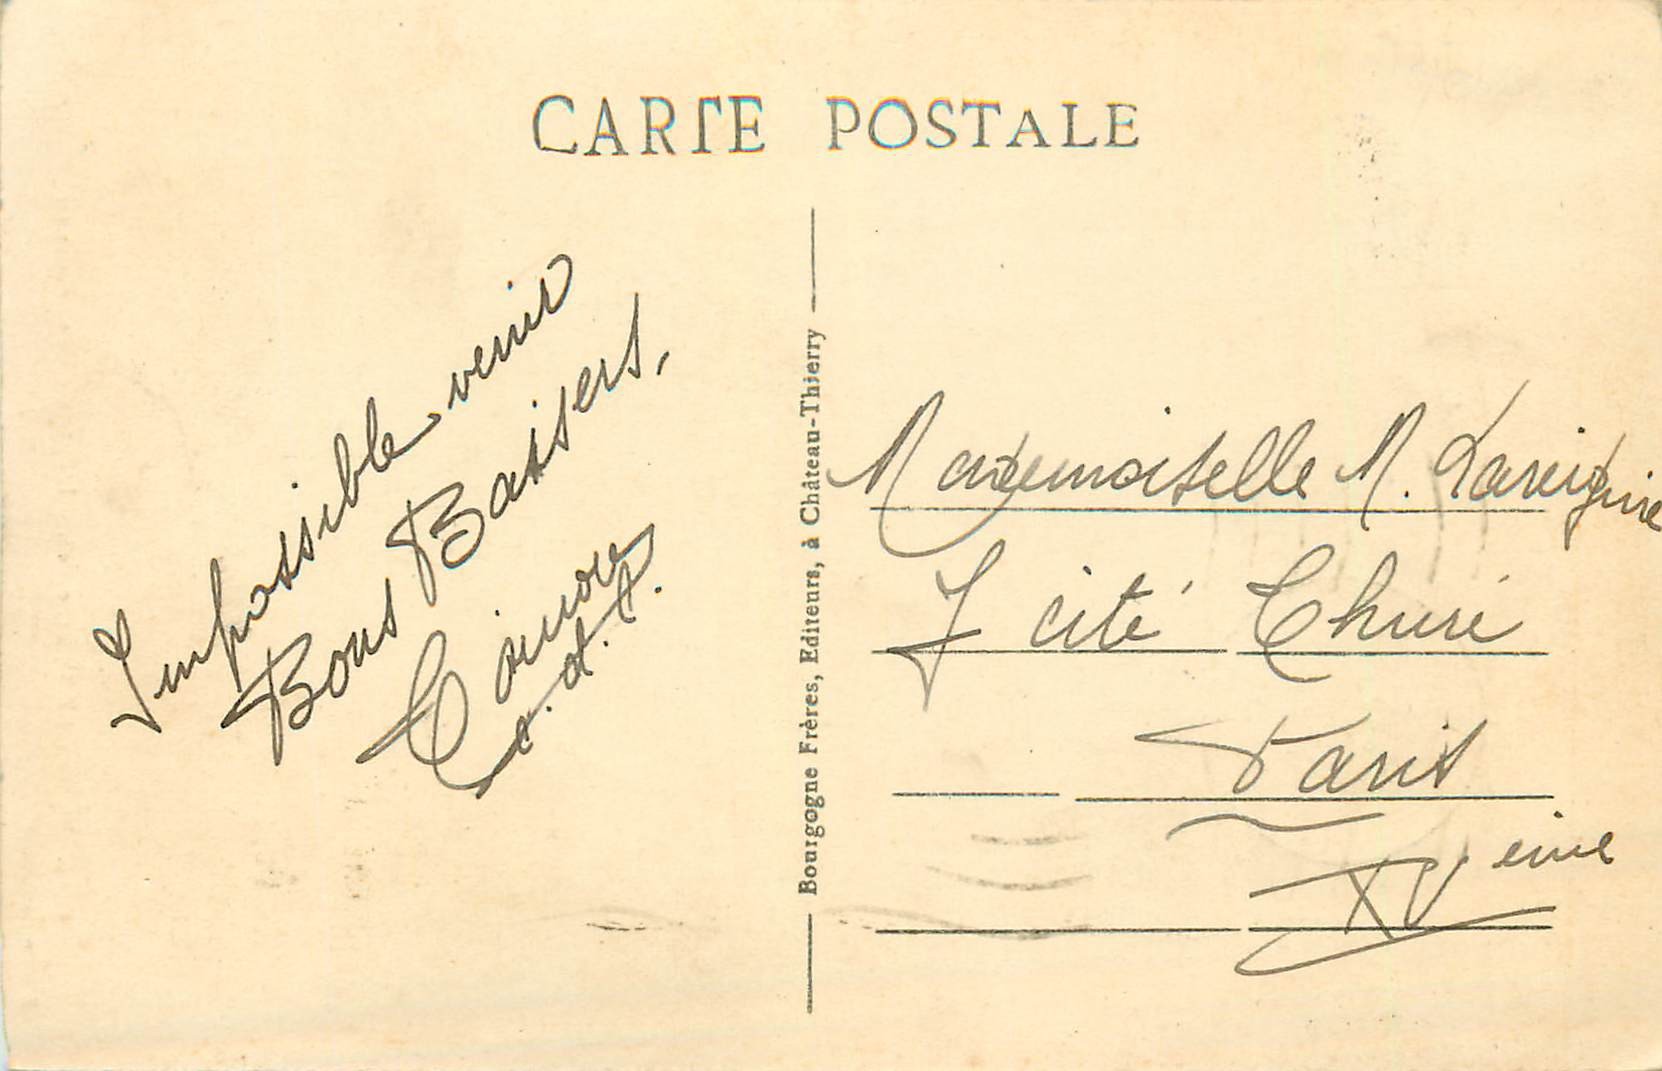 CARTE POSTALE
Impossible venir
Bons Baisers.
Bourgogne Frères, Editeurs, à Château-Thierry
Mademoiselle M.
7 cité Thuré
Paris
XVeme